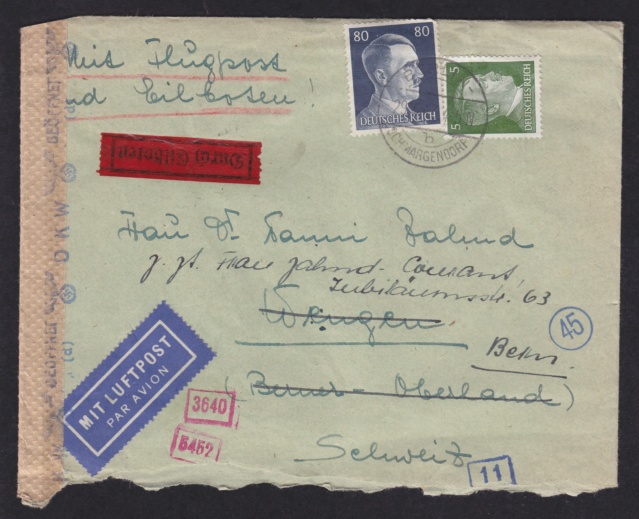 Mit Flugpost
und Eilboten!
80 80
DEUTSCHES REICH
5 5
DEUTSCHES REICH
SCHMARGENDORF
b
Durch Eilboten
GEÖFFNET
O K W
GEÖFFNET
(d)
Frau Dr. Fanni Zahnd
z. Zt. Frau Zahnd-Courant,
Jubiläumsstr. 63
Wengen
Bern.
(Berner-Oberland)
Schweiz
45
MIT LUFTPOST
PAR AVION
3640
5452
11